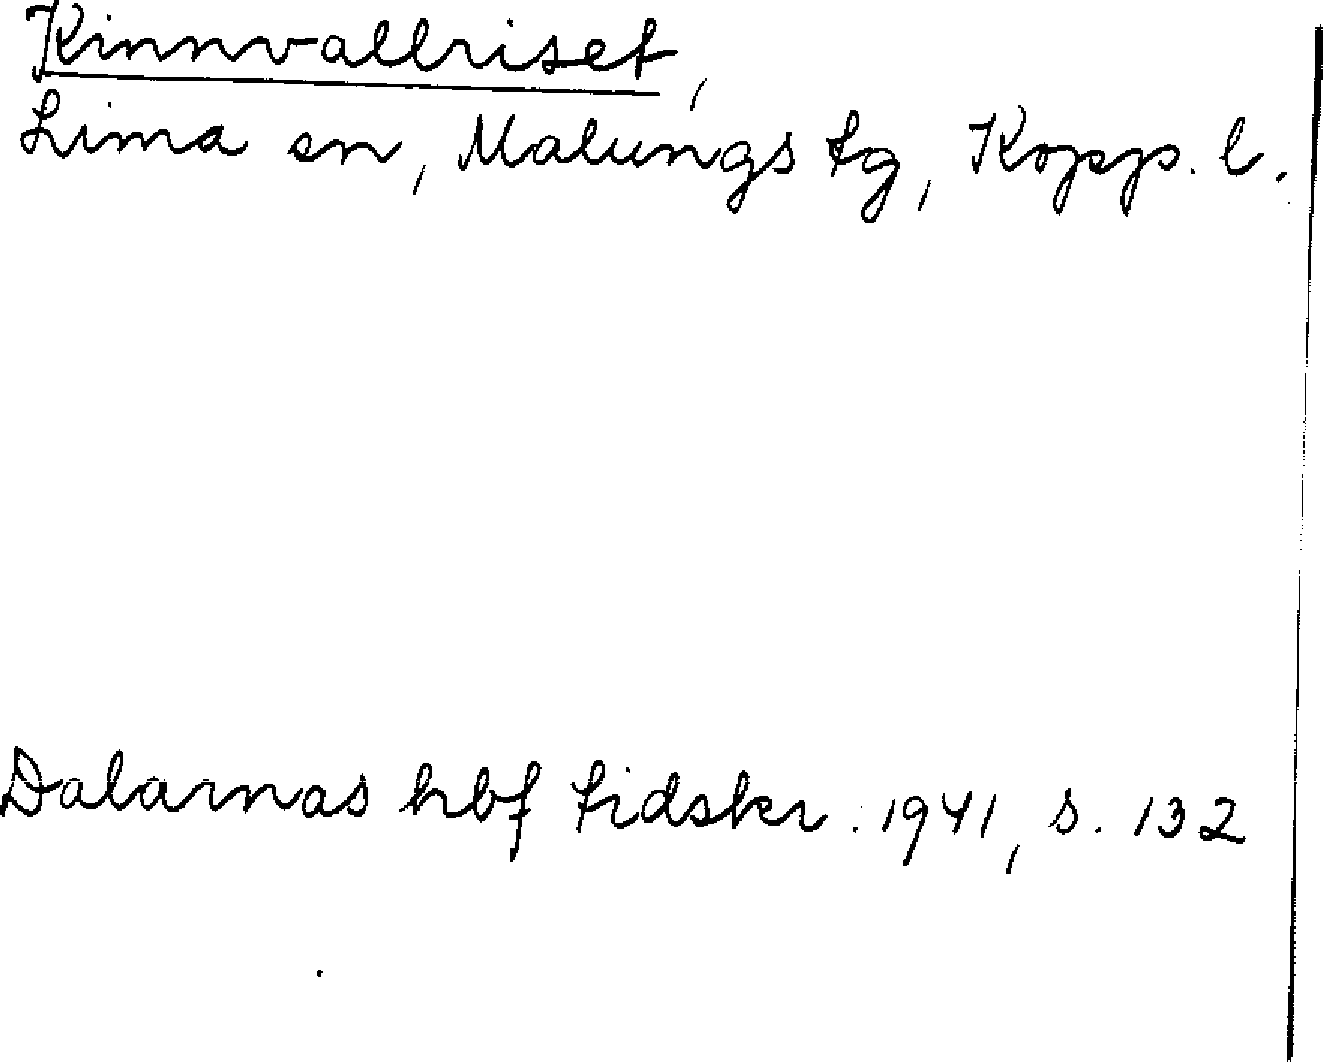 Kinnvallriset,
Lima sn, Malungs tg, Kopp. l.
Dalarnas hbf tidskr. 1941, s. 132